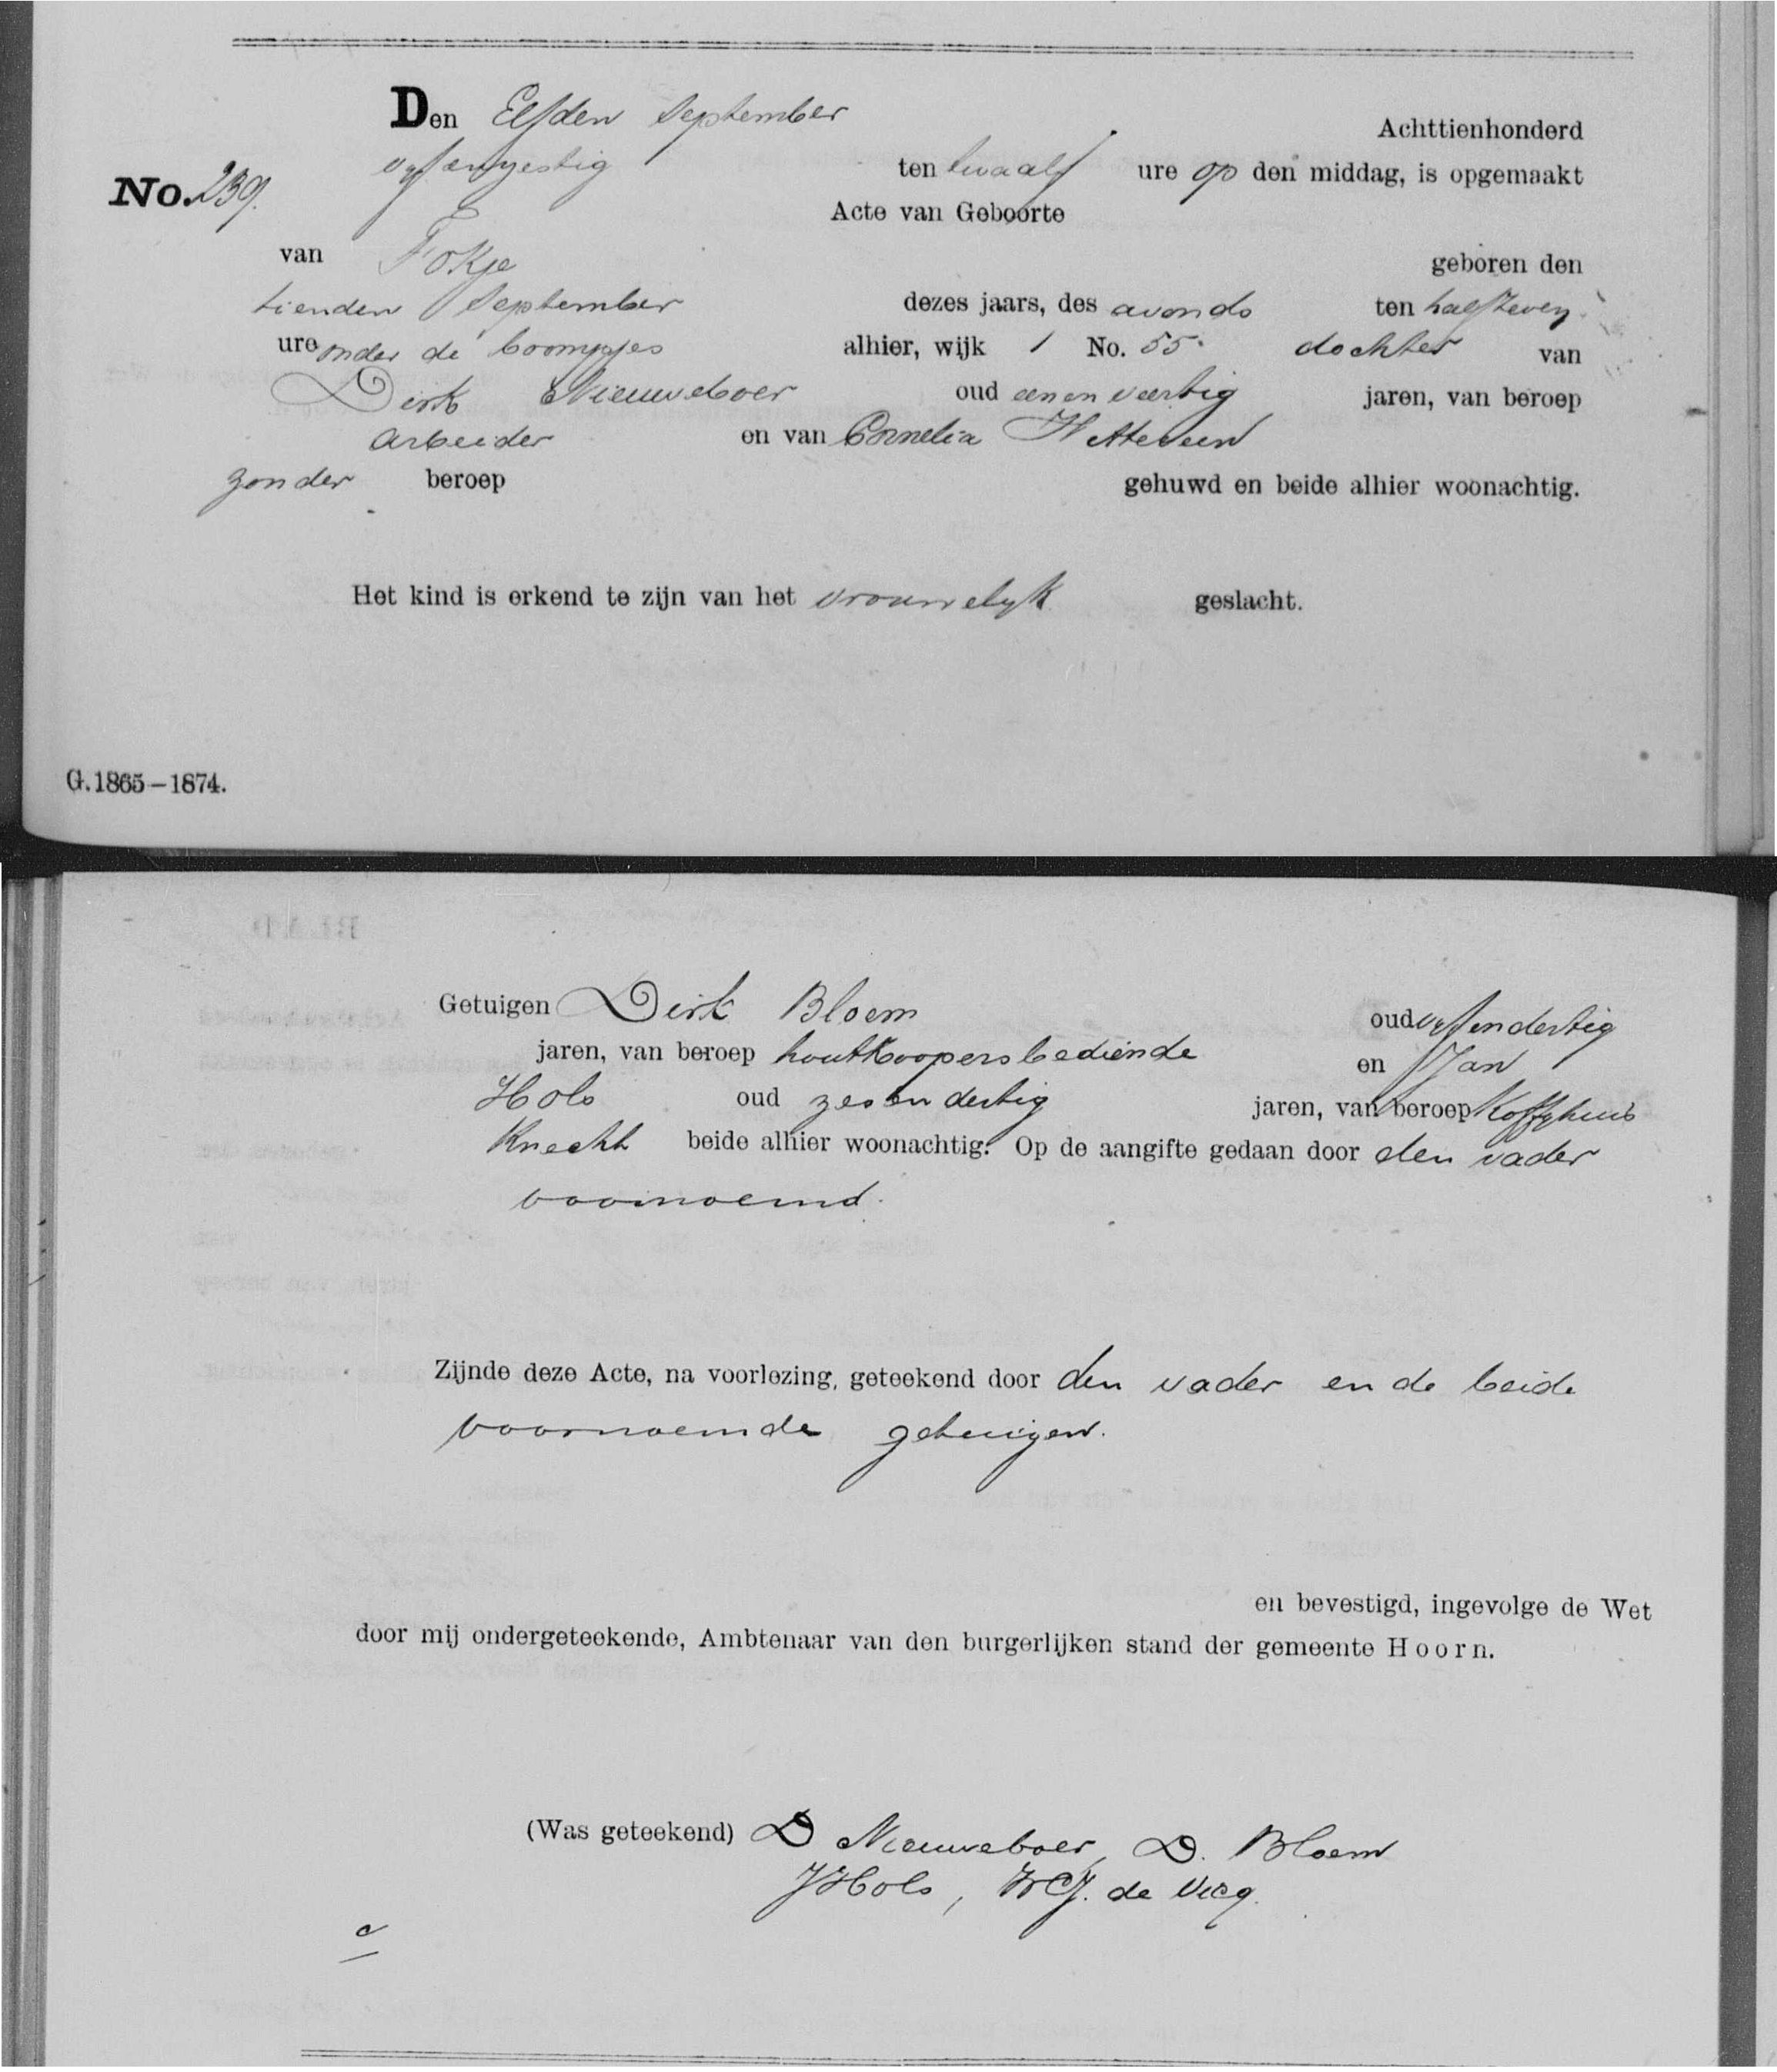 Den Elfden September Achttienhonderd
vyfenzestig ten twaalf ure op den middag, is opgemaakt
No. 239. Acte van Geboorte
van Fokje geboren den
tienden September dezes jaars, des avonds ten half zeven
ure onder de boompjes alhier, wijk 1 No. 55. dochter van
Dirk Nieuweboer oud een en veertig jaren, van beroep
arbeider en van Cornelia Hetteveen
zonder beroep gehuwd en beide alhier woonachtig.
Het kind is erkend te zijn van het vrouwelyk geslacht.
G. 1865–1874.
Getuigen Dirk Bloem oud vyfendertig
jaren, van beroep houtkoopersbediende en Jan
Hols oud zesendertig jaren, van beroep Koffyhuis
Knecht beide alhier woonachtig. Op de aangifte gedaan door den vader
voornoemd.
Zijnde deze Acte, na voorlezing, geteekend door den vader en de beide
voornoemde getuigen.
en bevestigd, ingevolge de Wet
door mij ondergeteekende, Ambtenaar van den burgerlijken stand der gemeente Hoorn.
(Was geteekend) D Nieuweboer, D. Bloem
J Hols, de Vicq.
c